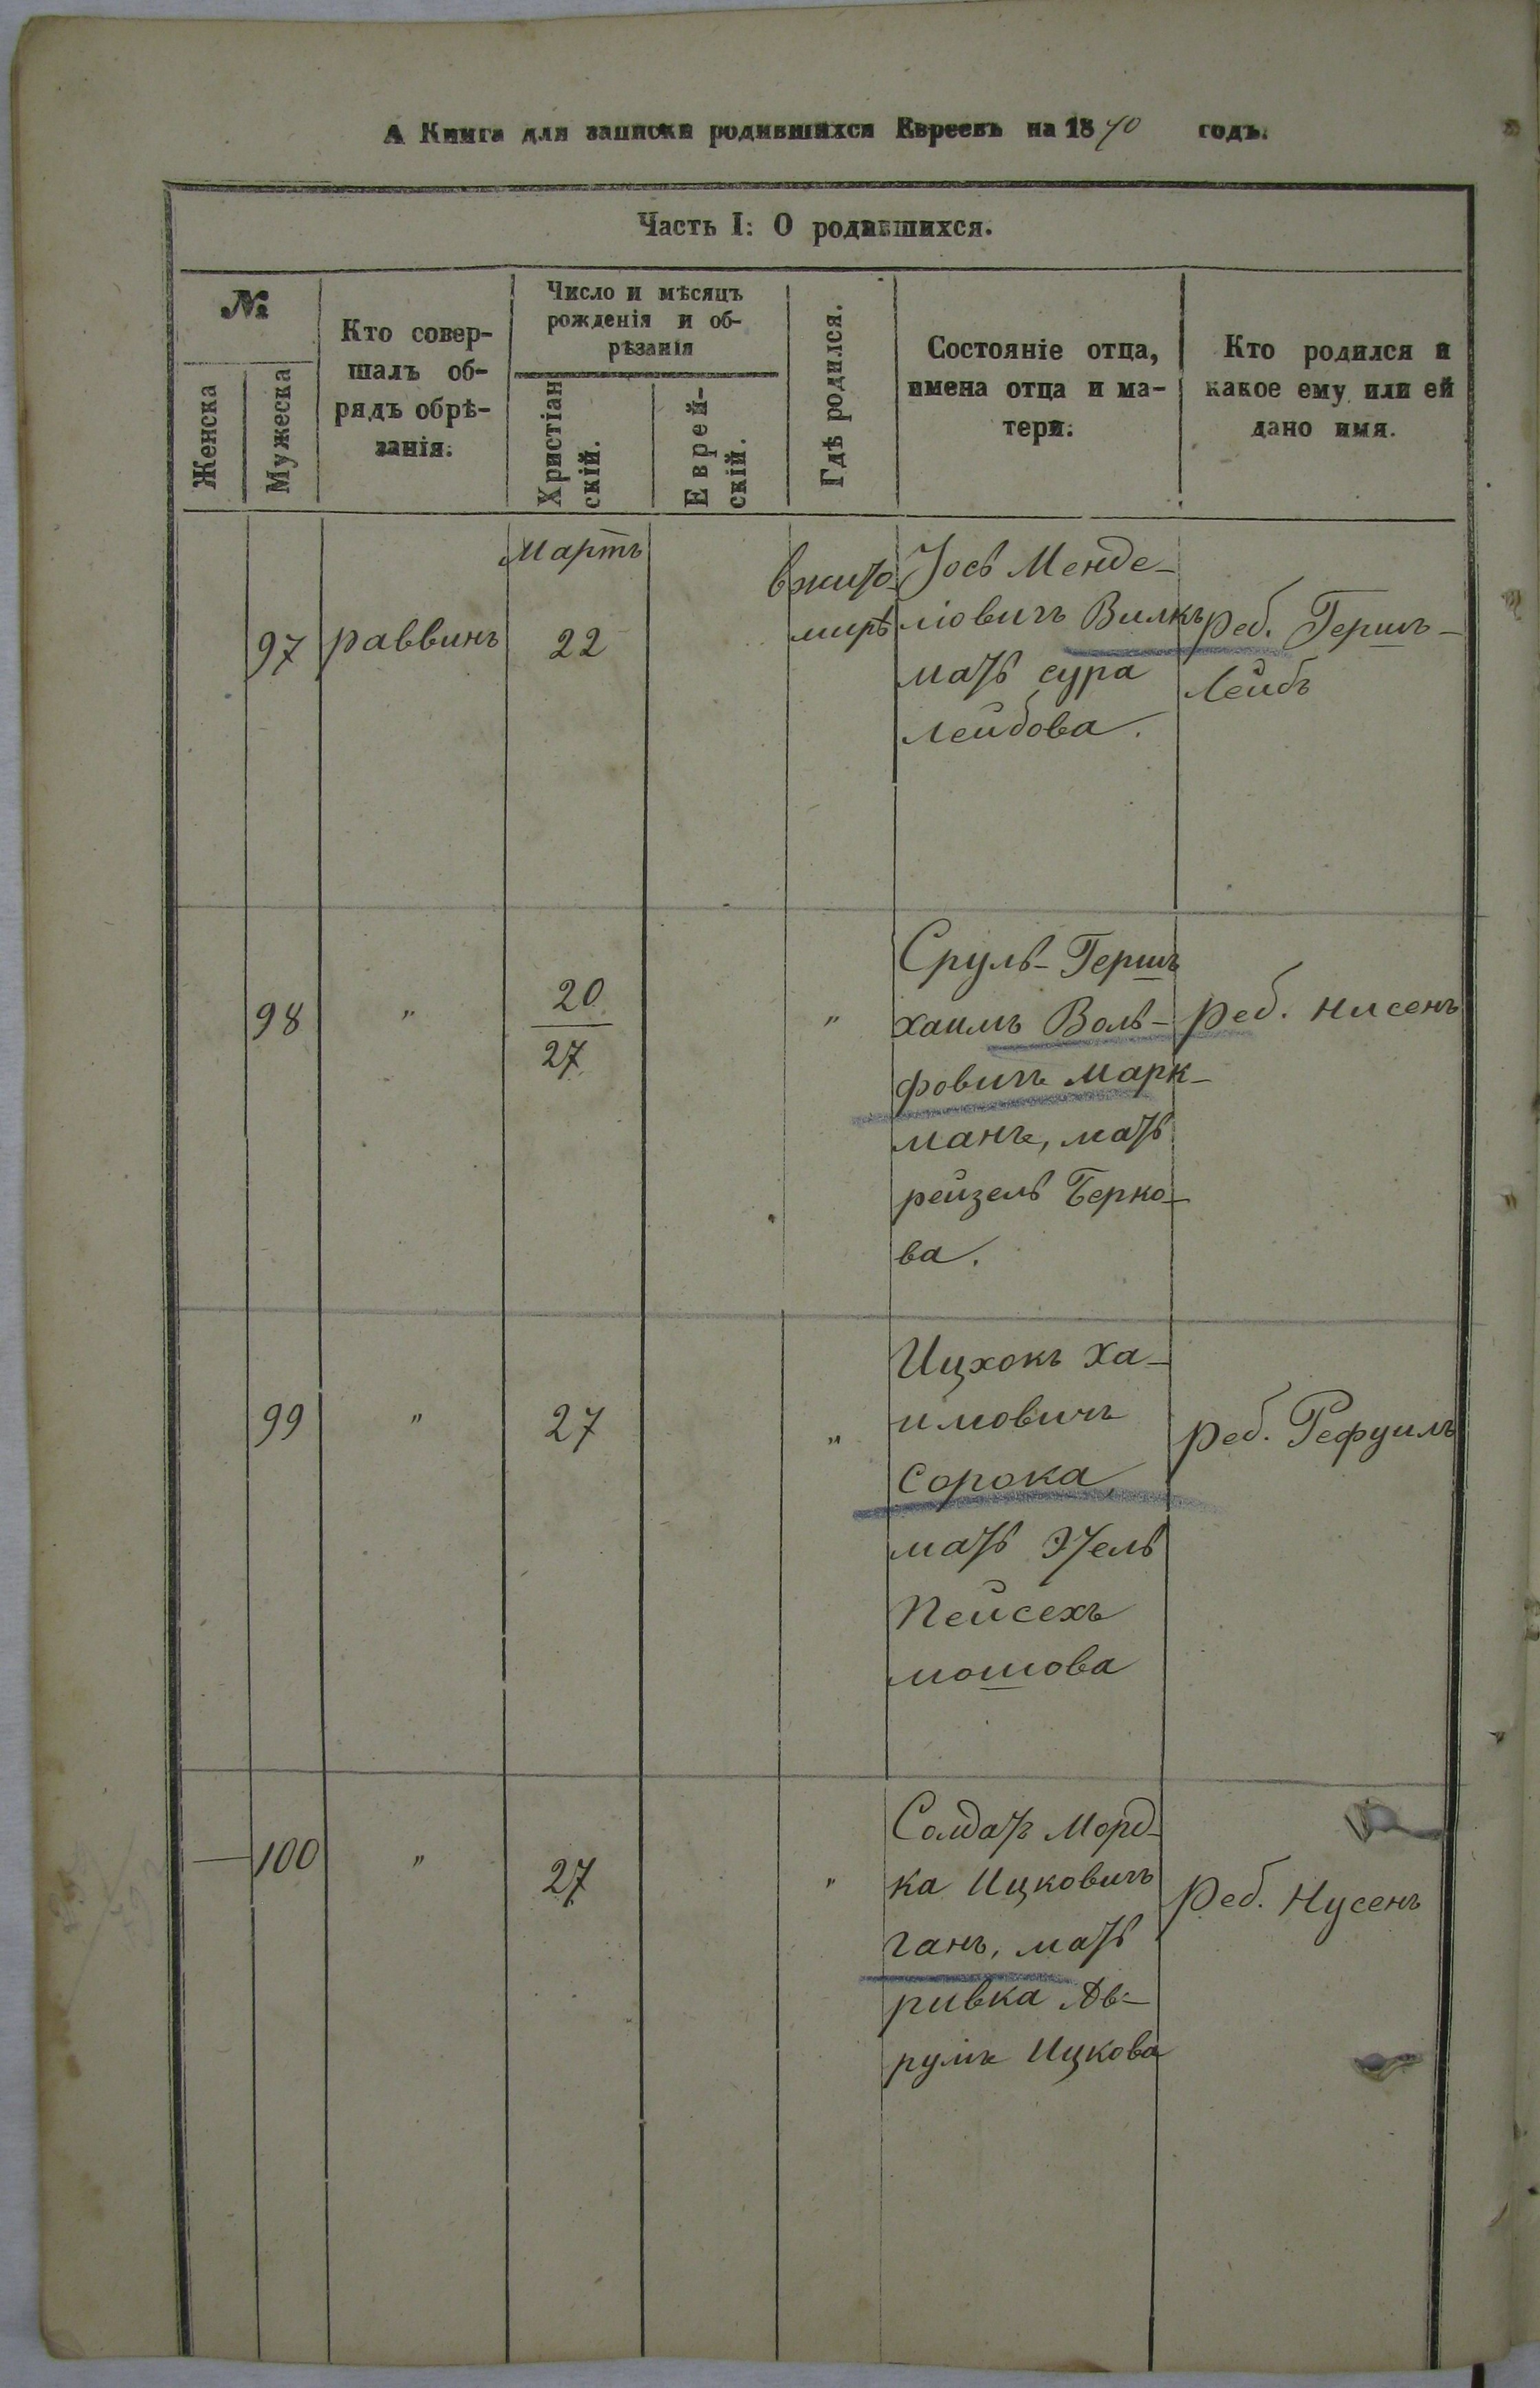 А Книга для записки родившихся Евреевъ на 1870 годъ.
Часть I: О родившихся.
№
Женска
Мужеска
Кто совер-
шалъ об-
рядъ обрѣ-
занія.
Число и мѣсяцъ
рожденія и об-
рѣзанія
Христіан
скій.
Еврей-
скій.
Гдѣ родился.
Состояніе отца,
имена отца и ма-
тери.
Кто родился и
какое ему или ей
дано имя.
Мартъ
97
раввинъ
22
вжито
мирѣ
Іось Менде-
ліовичъ Вилкъ
мать сура
Лейбова.
реб. Гершъ-
Лейбъ
98
"
20
27
"
Сруль-Гершъ
хаимъ Воль-
фовичъ Марк-
манъ, мать
рейзель Берко-
ва.
реб. Нисенъ
99
"
27
"
Ицхокъ Ха-
имовичъ
Сорока,
мать Этель
Пейсехъ
мошова
реб. Рефуилъ
100
"
27
"
Солдатъ Морд-
ка Ицковичъ
ганъ, мать
ривка Ав-
румъ Ицкова
Реб. Нусенъ